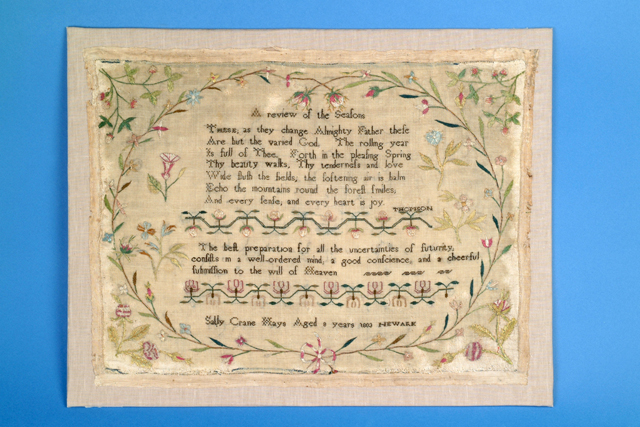 A review of the Seaſons
THESE, as they change Almighty Father theſe
Are but the varied God. The rolling year
Is full of Thee. Forth in the pleaſing Spring
Thy beauty walks, Thy tenderneſs and love
Wide fluſh the fields; the ſoftening air is balm
Echo the mountains round the foreſt ſmiles;
And every ſenſe; and every heart is joy.
THOMSON
The beſt preparation for all the uncertainties of futurity,
conſiſts in a well-ordered mind, a good conſcience, and a cheerful
ſubmiſſion to the will of Heaven
Sally Crane Hays Aged 9 years 1803 NEWARK